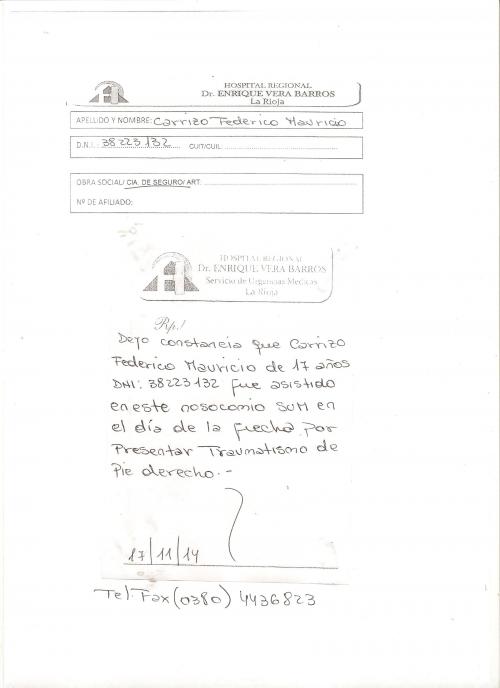 HOSPITAL REGIONAL
Dr. ENRIQUE VERA BARROS
La Rioja
APELLIDO Y NOMBRE: Carrizo Federico Mauricio
D.N.I.: 38223132 CUIT/CUIL:
OBRA SOCIAL/ CIA. DE SEGURO/ ART:
Nº DE AFILIADO:
HOSPITAL REGIONAL
Dr. ENRIQUE VERA BARROS
Servicio de Urgencias Medicas
La Rioja
Rp./
Dejo constancia que Carrizo
Federico Mauricio de 17 años
DNI: 38223132 fue asistido
en este nosocomio SUM en
el día de la fecha por
Presentar Traumatismo de
Pie derecho.-
17/11/14
Tel-Fax (0380) 4436823